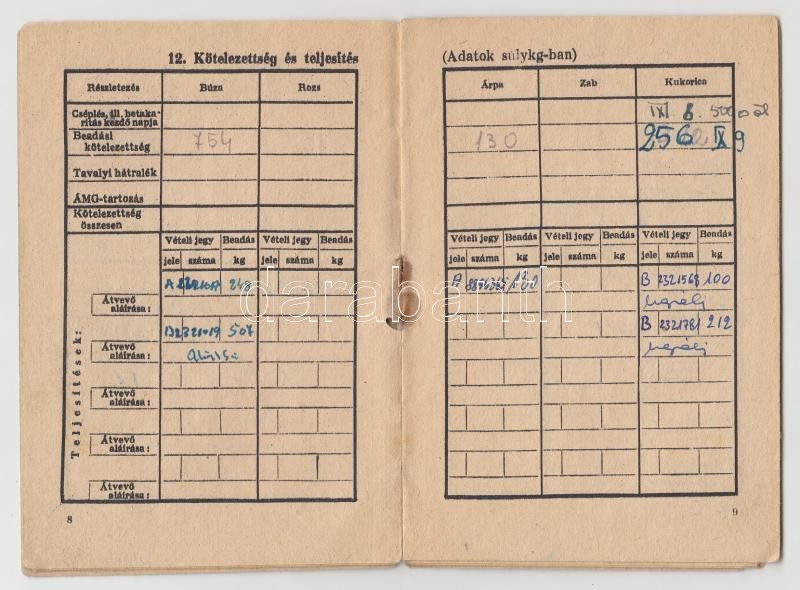 12. Kötelezettség és teljesítés
Részletezés Búza Rozs
Cséplés, ill. betaka-
rítás kezdő napja
Beadási
kötelezettség 754
Tavalyi hátralék
ÁMG-tartozás
Kötelezettség
összesen
Vételi jegy Beadás Vételi jegy Beadás
jele száma kg jele száma kg
Teljesítések:
A 248
Átvevő
aláírása:
B 2321019 507
Átvevő
aláírása:
Átvevő
aláírása:
Átvevő
aláírása:
Átvevő
aláírása:
8
(Adatok súlykg-ban)
Árpa Zab Kukorica
IXI 8. 5000 öl
130 256 IX 9
Vételi jegy Beadás Vételi jegy Beadás Vételi jegy Beadás
jele száma kg jele száma kg jele száma kg
A 130 B 2321568 100
B 2321781 212
9
darabanth